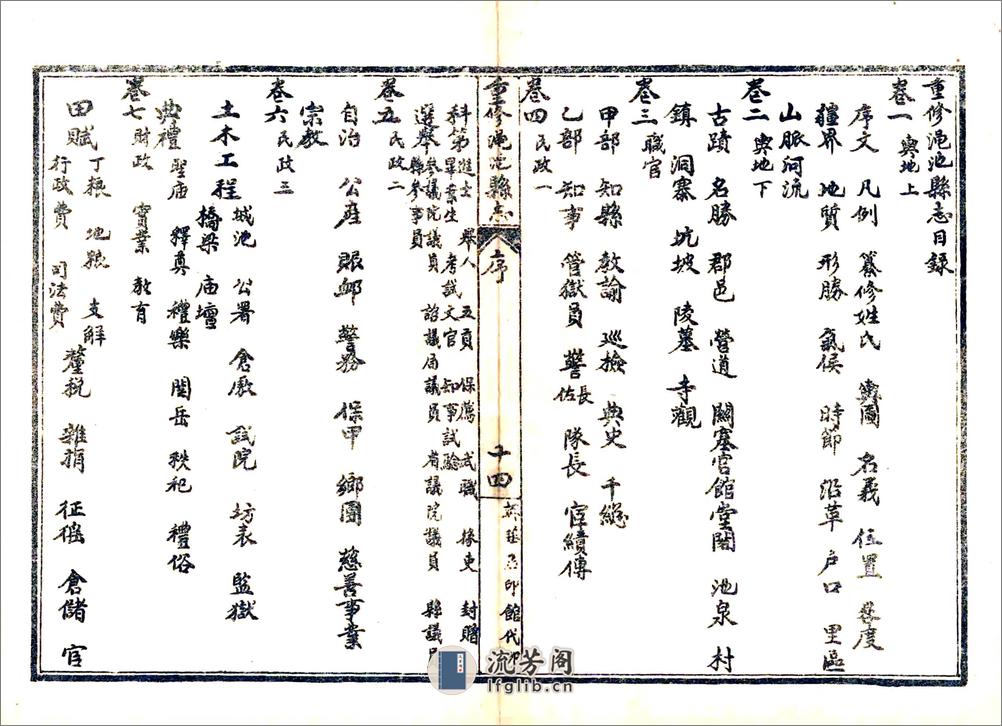 重修渑池縣志目録
卷一 輿地上
序文 凡例 纂修姓氏 輿圖 名義 位置 晷度
疆界 地質 形勝 氣候 時節 沿革 户口 里區
山脈河流
卷二 輿地下
古蹟 名勝 郡邑 營道 關塞 官館 堂閣 池泉 村
鎮 洞寨 坑坡 陵墓 寺觀
卷三 職官
甲部 知縣 教諭 巡檢 典史 千總
乙部 知事 管獄員 警佐長 隊長 官績傳
卷四 民政一
重修渑池縣志 序 十四 館代印
科第 進士 舉人 五貢 保薦 武職 掾吏 封贈
畢業生 考試文官 知事試驗
選舉 參議院議員 諮議局議員 省議院議員 縣議
縣參事員
卷五 民政二
自治 公產 賑卹 警務 保甲 鄉團 慈善事業
宗教
卷六 民政三
土木工程 城池 公署 倉廒 試院 坊表 監獄
橋梁 庙壇
典禮 聖庙 釋奠 禮樂 関岳 秩祀 禮俗
卷七 財政 實業 教育
田賦 丁粮 地粮 支解
行政費 司法費 釐税 雜捐 征徭 倉儲 官
流芳阁
lfglib.cn